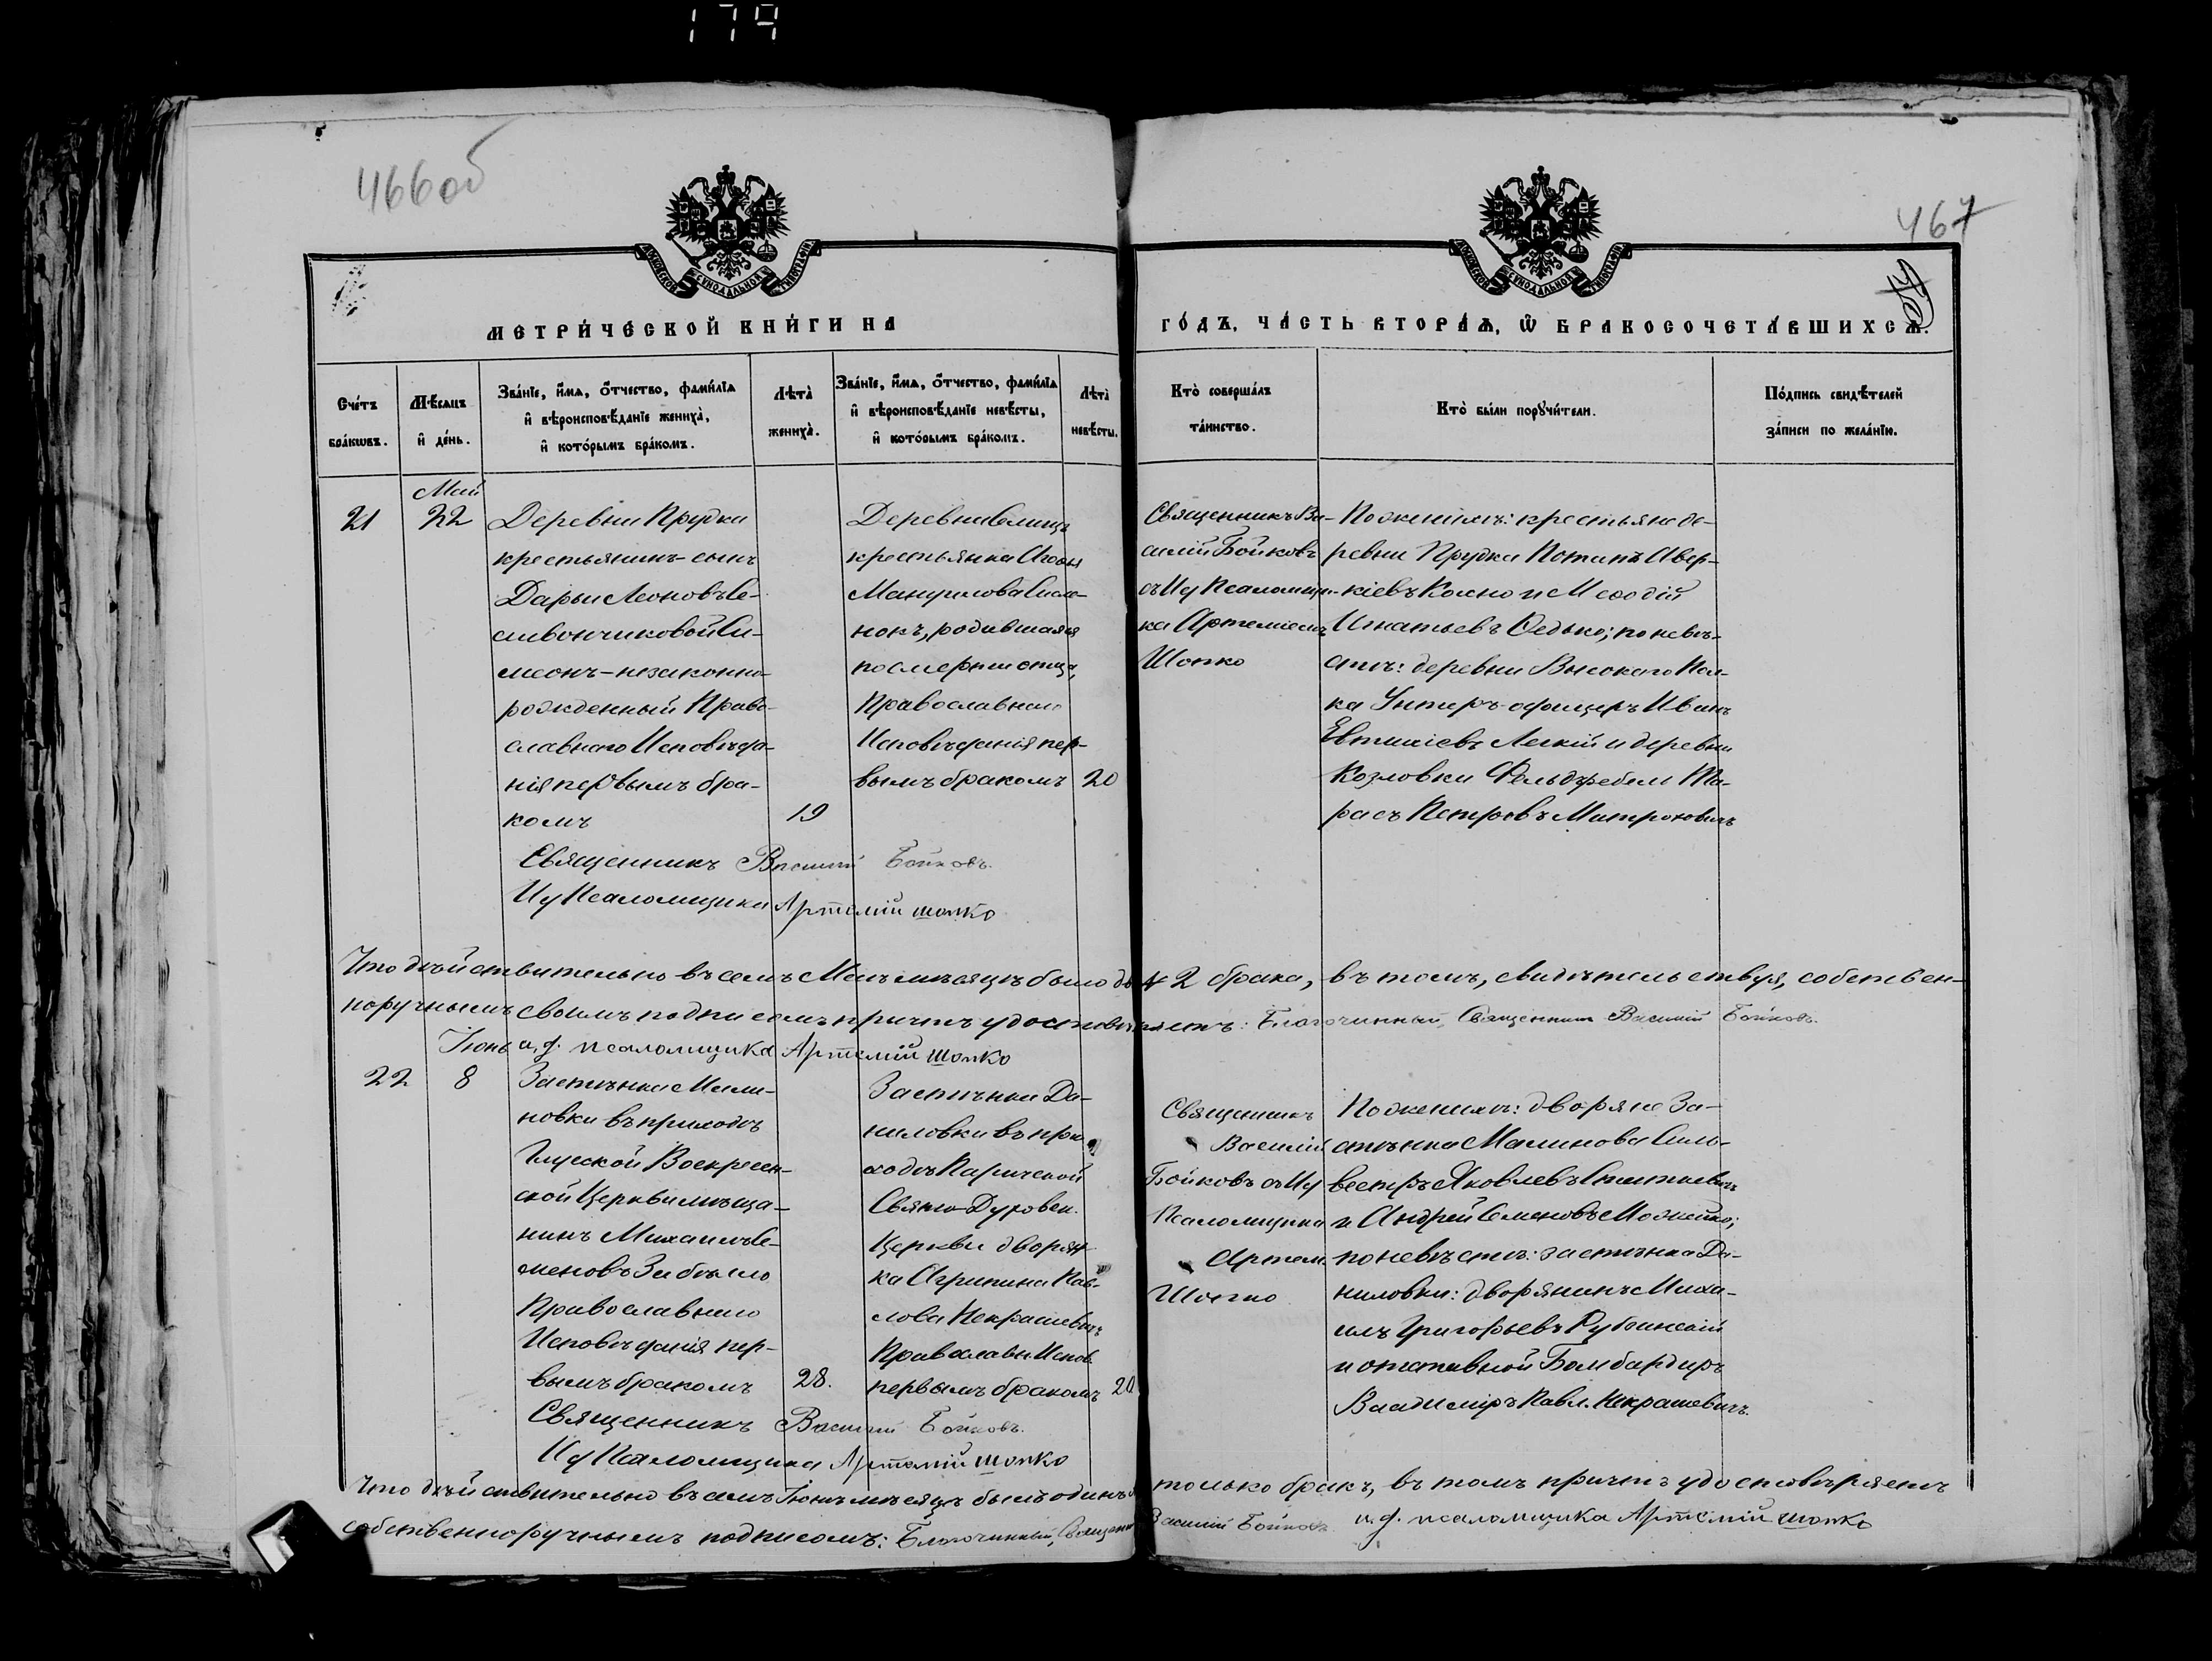 179
466об
467
МОСКОВСКОЙ СѴНОДАЛЬНОЙ ТИПОГРАФІИ
МОСКОВСКОЙ СѴНОДАЛЬНОЙ ТИПОГРАФІИ
МЕТРИ́ЧЕСКОЙ КНИ́ГИ НА
ГО́ДЪ, ЧА́СТЬ ВТОРА́Ѧ, Ѿ БРАКОСОЧЕТА́ВШИХСѦ.
Сче́тъ бра́кѡвъ.
Мѣ́сѧцъ и҆ де́нь.
Зва́нїе, и҆́мѧ, ѻ҆́тчество, фами́лїѧ
и҆ вѣроисповѣ́данїе жениха̀,
и҆ кото́рымъ бра́комъ.
Лѣта̀ жениха̀.
Зва́нїе, и҆́мѧ, ѻ҆́тчество, фами́лїѧ
и҆ вѣроисповѣ́данїе невѣ́сты,
и҆ кото́рымъ бра́комъ.
Лѣта̀ невѣ́сты.
Кто̀ соверша́лъ
та́инство.
Кто̀ бы́ли порꙋчи́тели.
По́дпись свидѣ́телей
за́писи по жела́нїю.
Май
21
22
Деревни Прудка
крестьянинъ-сынъ
Дарьи Леоновъ Се-
ливончиковой Си-
меонъ-незаконно-
рожденный Право-
славнаго Исповѣда-
нія первымъ бра-
комъ
19
Деревни Селища
крестьянка
Мануилова
нокъ, родившаяся
по смерти отца,
Православнаго
Исповѣданія пер-
вымъ бракомъ
20
Священникъ Ва-
силій Бойковъ
съ Иq Псаломщи-
ка Артеміемъ
Шопко
По женихѣ: крестьяне де-
ревни Прудка Потапъ Авер-
кіевъ Колно и Меѳодій
Игнатьевъ Ѳедько; по невѣ-
стѣ: деревни Высокаго Пол-
ка Унтеръ-офицеръ Иванъ
Евтихіевъ Легкій и деревни
Козловки Фельдфебель Та-
расъ Петровъ Митроховичъ
Священникъ Василий Бойковъ.
Ид Псаломщика Артемій Шопко
Что дѣйствительно въ семъ Маѣ мѣсяцѣ было 2 брака, въ томъ, свидѣтельствуя, собствен-
норучнымъ своимъ подписомъ причтъ удостовѣряетъ: Благочинный, Священникъ Василий Бойковъ.
и. д. псаломщика Артемій Шопко
Іюнь
22
8
Застѣнка Мали-
новки въ приходѣ
Глусской Воскресен-
ской Церкви мѣща-
нинъ Михаилъ Се-
меновъ Забѣло
Православнаго
Исповѣданія пер-
вымъ бракомъ
28.
Застѣнка Да-
ниловки въ при-
ходѣ Паричской
Свято-Духовск.
Церкви дворян-
ка Агрипина Пав-
лова Некрашевичъ
Православн Испов.
первымъ бракомъ
20
Священникъ
Василій
Бойковъ съ Ид
Псаломщика
Артем.
Шопко
По женихѣ: дворяне За-
стѣнка Малинова Силь-
вестръ Яковлевъ
и Андрей Семеновъ Можейко;
по невѣстѣ: застѣнка Да-
ниловки: дворянинъ Миха-
илъ Григорьевъ Рубинскій
и отставной Бомбардиръ
Владиміръ Павл. Некрашевичъ.
Священникъ Василий Бойковъ.
Ид Псаломщика Артемій Шопко
Что дѣйствительно въ семъ Іюнѣ мѣсяцѣ былъ одинъ только бракъ, въ томъ причтъ удостовѣряетъ
собственноручнымъ подписомъ: Благочинный, Священникъ Василий Бойковъ и. д. псаломщика Артемій Шопко